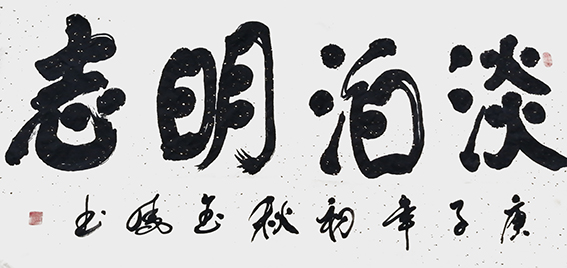 淡泊明志
庚子年初秋书